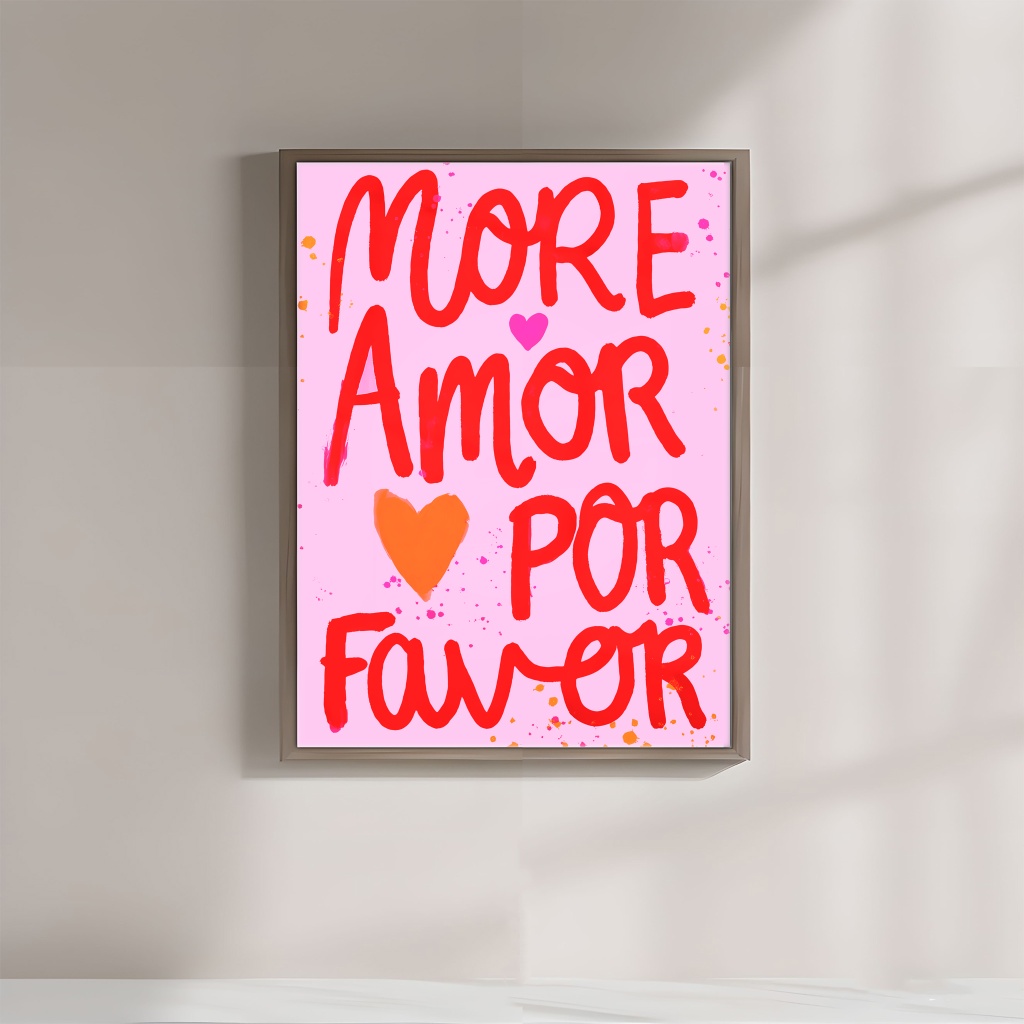 MORE
AMOR
POR
FavoR